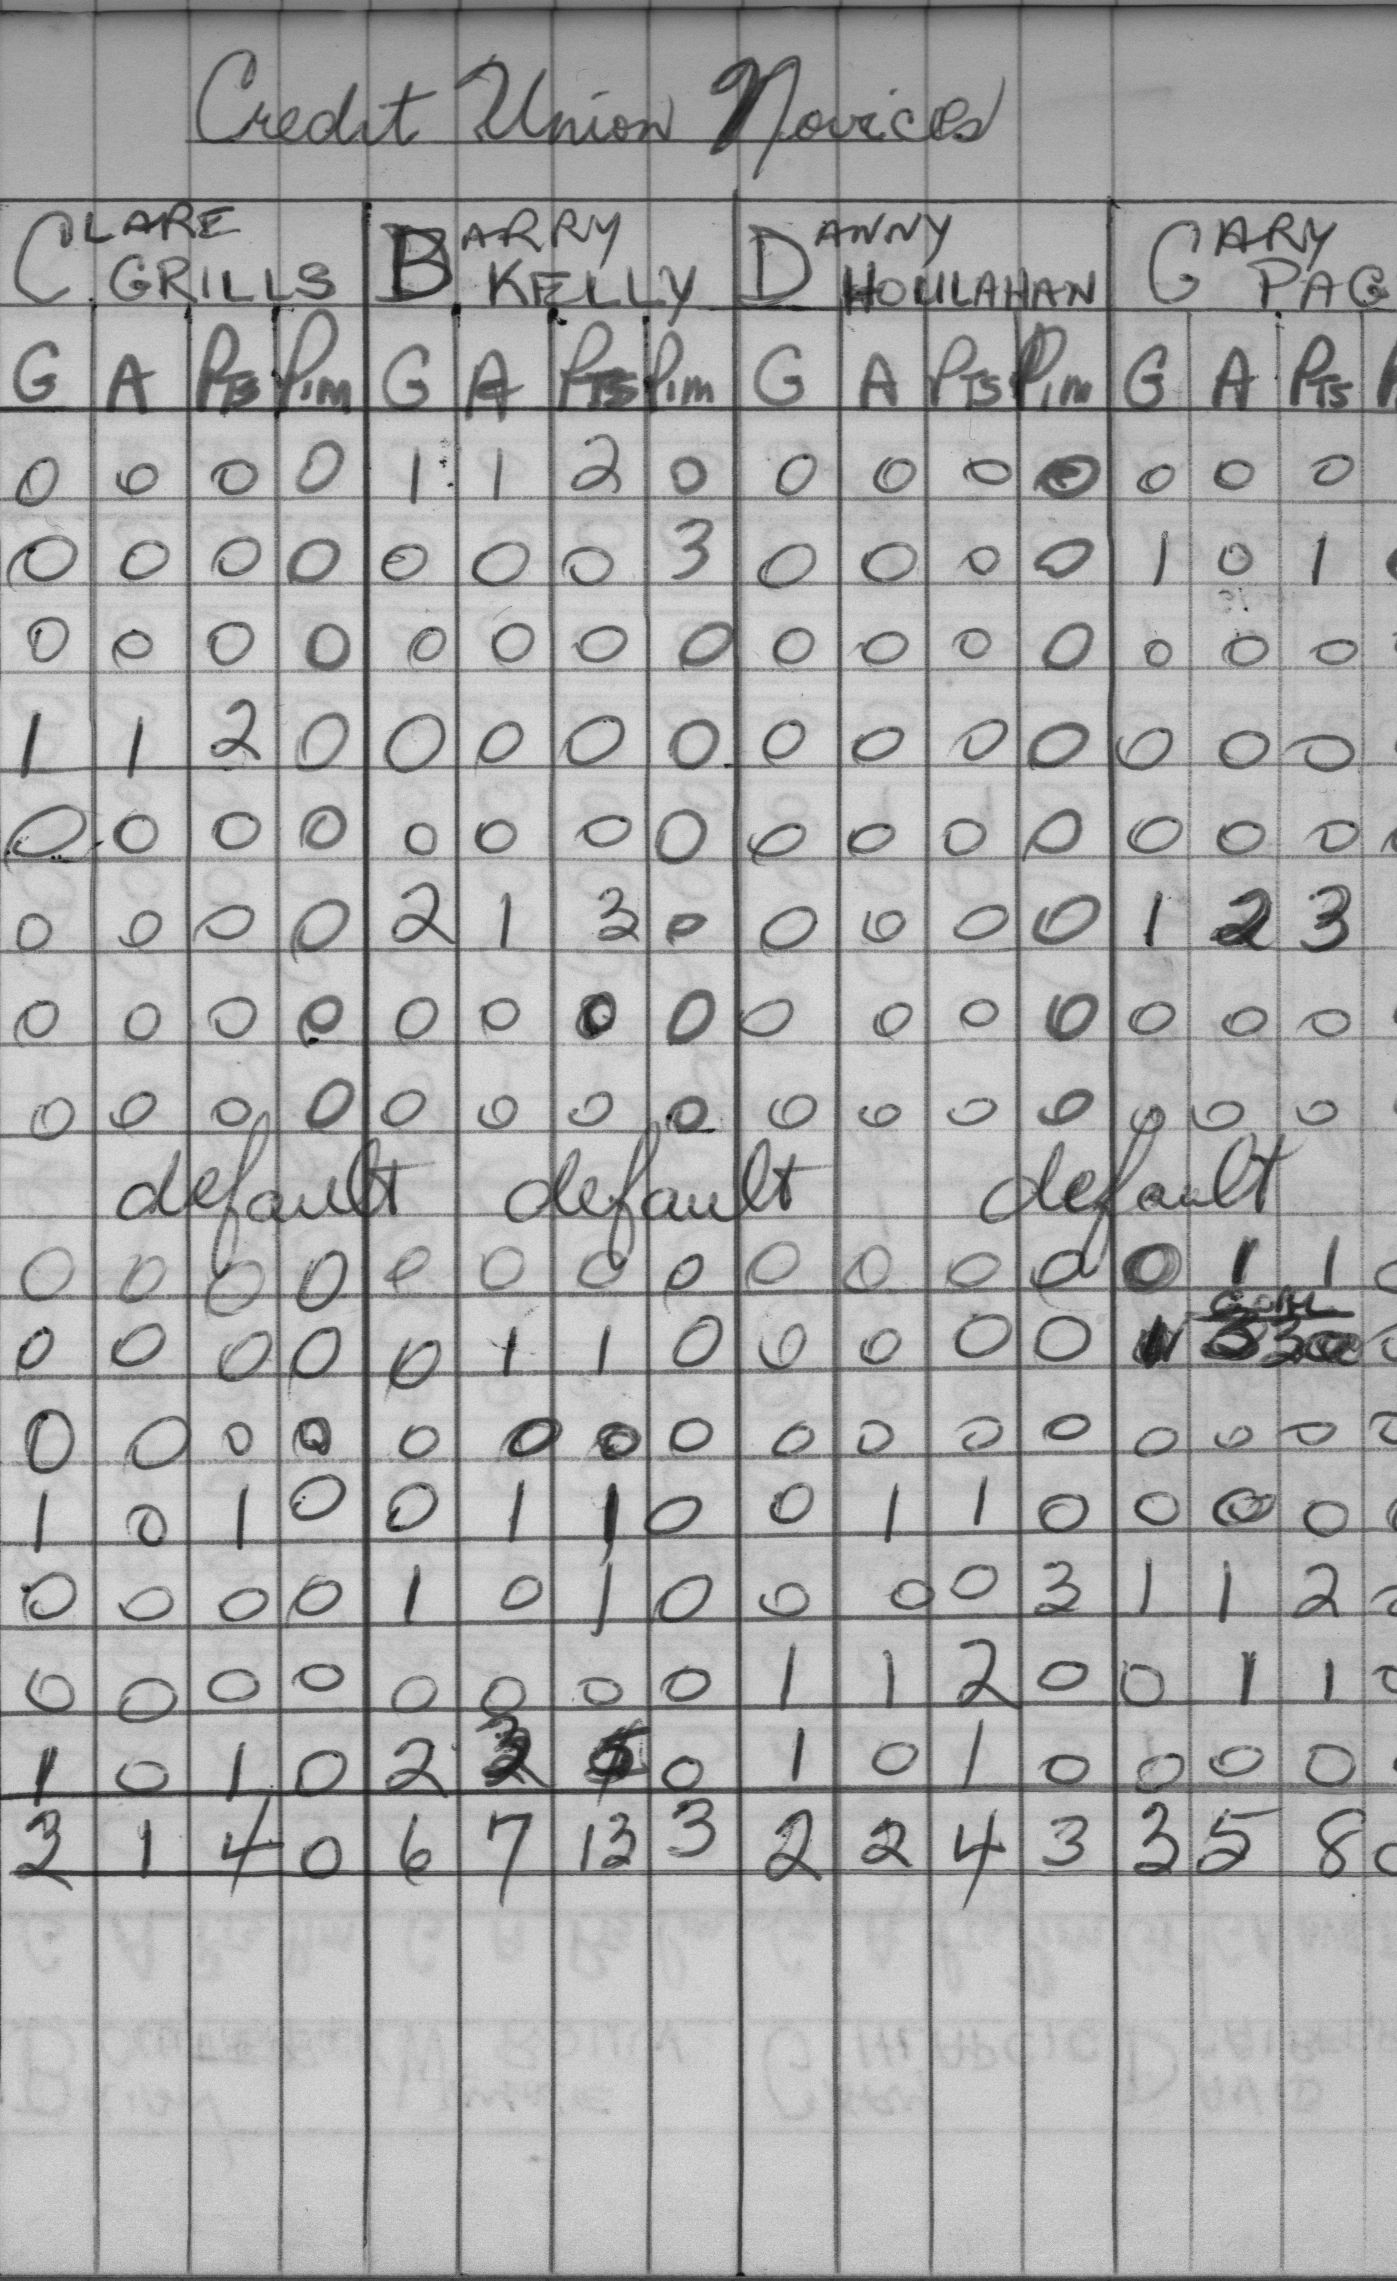 Credit Union Novices
CLARE GRILLS BARRY KELLY DANNY HOULAHAN GARY PAG
G A PTS PIM G A PTS PIM G A PTS PIM G A PTS
0 0 0 0 1 1 2 0 0 0 0 0 0 0 0
0 0 0 0 0 0 0 3 0 0 0 0 1 0 1
0 0 0 0 0 0 0 0 0 0 0 0 0 0 0
1 1 2 0 0 0 0 0 0 0 0 0 0 0 0
0 0 0 0 0 0 0 0 0 0 0 0 0 0 0
0 0 0 0 2 1 3 0 0 0 0 0 1 2 3
0 0 0 0 0 0 0 0 0 0 0 0 0 0 0
0 0 0 0 0 0 0 0 0 0 0 0 0 0 0
default default default
0 0 0 0 0 0 0 0 0 0 0 0 0 1 1
0 0 0 0 0 1 1 0 0 0 0 0
0 0 0 0 0 0 0 0 0 0 0 0 0 0 0
1 0 1 0 0 1 1 0 0 1 1 0 0 0 0
0 0 0 0 1 0 1 0 0 0 0 3 1 1 2
0 0 0 0 0 0 0 0 1 1 2 0 0 1 1
1 0 1 0 2 3 5 0 1 0 1 0 0 0 0
3 1 4 0 6 7 13 3 2 2 4 3 3 5 8